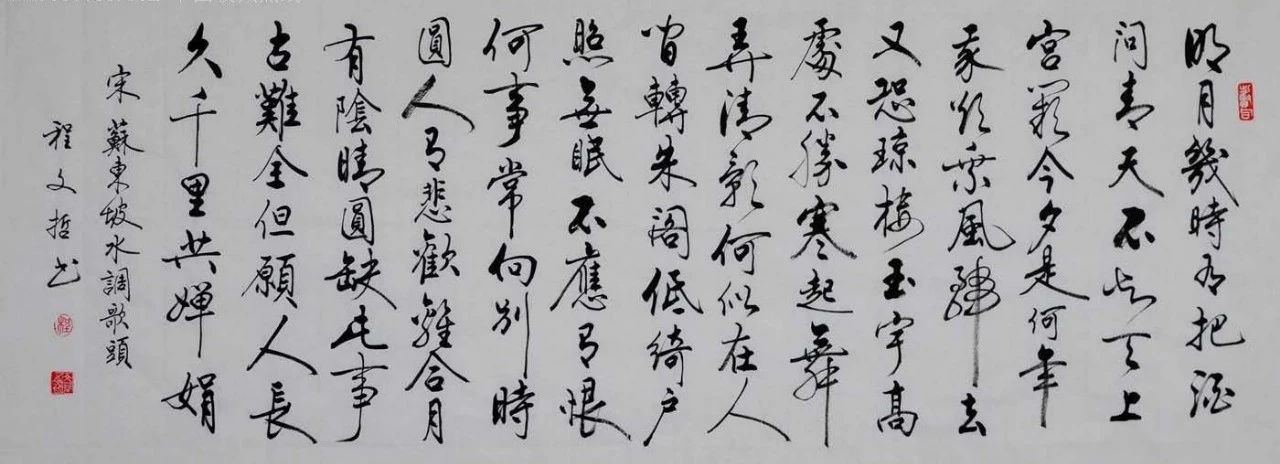 明月幾時有把酒
问青天不知天上
宮闕今夕是何年
我欲乘風歸去
又恐琼樓玉宇高
處不勝寒起舞
弄清影何似在人
間轉朱閣低綺户
照無眠不應有恨
何事常向别時
圓人有悲歡離合月
有陰晴圓缺此事
古難全但願人長
久千里共嬋娟
宋蘇東坡水調歌頭
程文哲书